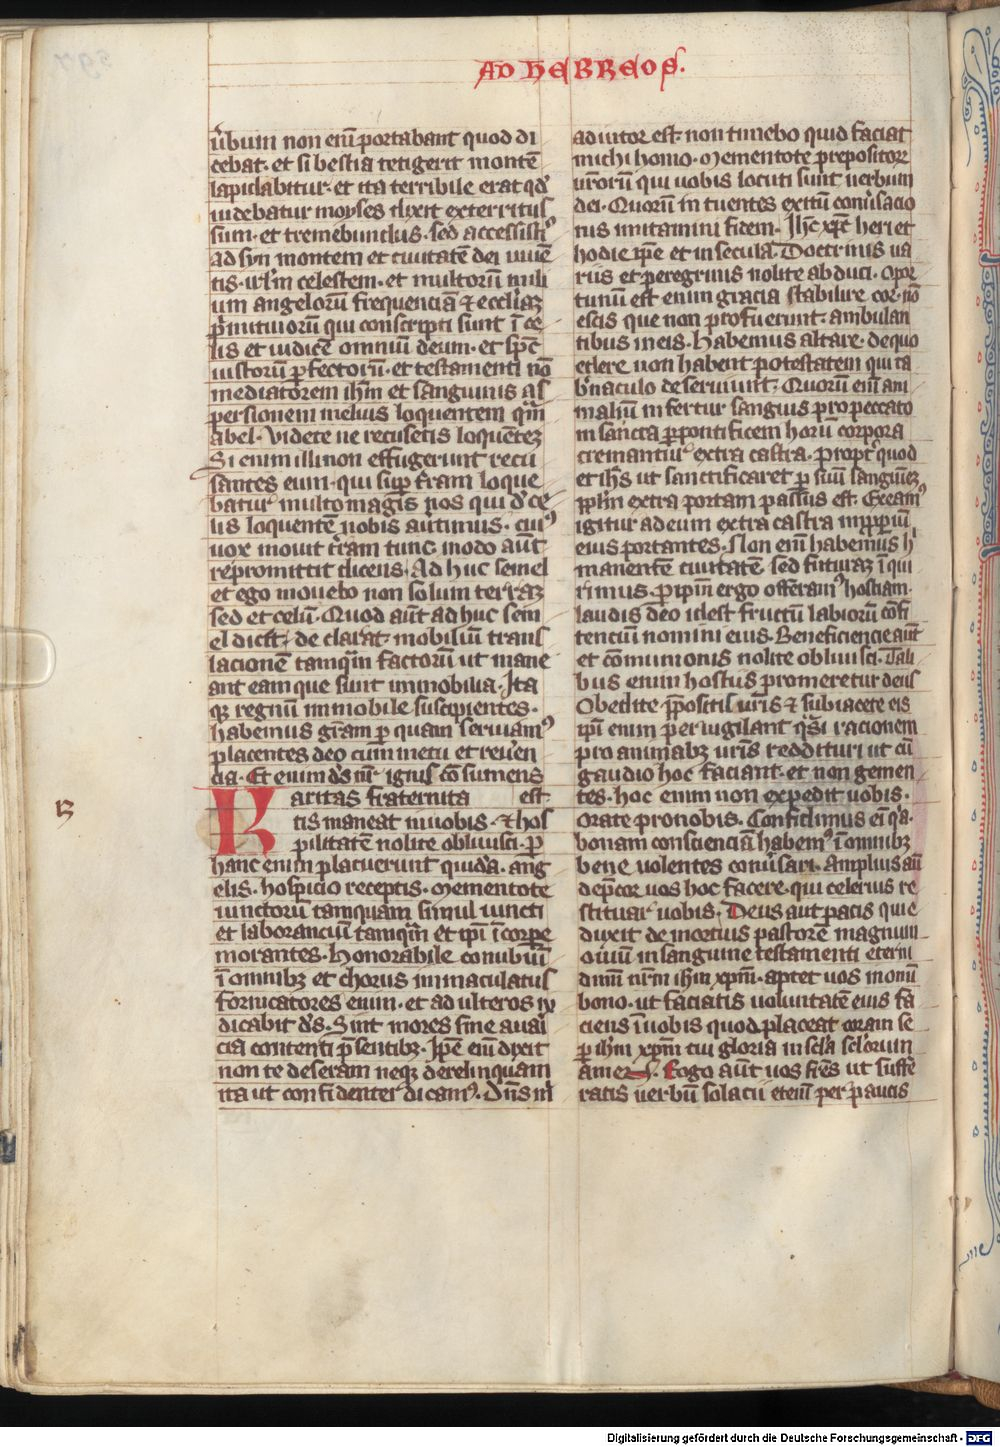 AD HEBREOS.
u̓bum non eni͂ portabant quod di
cebat· et si bestia tetigerit monte͂
lapidabitur· et ita terribile erat qd̓
uidebatur moyses dixit exterritus
sum· et tremebundus· sed accessistꝰ
ad syn montem et ciuitate͂ dei uiue͂
tis· irl̓m celestem· et multoru͂ mili
um angeloru͂ frequencia͂ ⁊ eccl̓iaꝫ
p̓mitiuoru͂ qui conscripti sunt i͂ ce
lis et iudice͂ omniu͂ deum· et sp͂c
iustoru͂ ꝑfectoru͂· et testamenti no͂
mediatorem ih͂m et sanguinis as
persionem melius loquentem qm̓
abel· Videte ne recusetis loque͂teꝫ
Si enim illi non effugerunt recu
santes eum· qui suꝑ t̓ram loque
batur multo magis nos qui d̓ ce
lis loquente͂ nobis au̓timus· cuiꝰ
uox mouit t̓ram tunc modo au͂t
repromittit dicens· Ad huc semel
et ego mouebo non solum terraꝫ
sed et celu͂· Quod au͂t ad huc sem
el dicit· de clarat· mobiliu͂ trans
lacione͂ tamqua͂ factoru͂ ut mane
ant eam que sunt immobilia· Ita
qꝫ regnu͂ immobile suscipientes·
habemus gr͂am ꝑ quam seruiamꝰ
placentes deo cum metu et reu̓en
cia· Et enim d̓s nr͂ ignis co͂sumens
est
Karitas fraternita
tis maneat in uobis· ⁊ hos
pilitatem nolite obliuisci· ꝑ
hanc enim placuerunt quida͂· ang
elis· hospicio receptis· Mementote
iunctoru͂ tamquam simul iuncti
et laboranciu͂ tamqua͂ et ip͂i i͂ corpe
morantes· Honorabile conubiu͂
i͂ omnibꝫ et chorus immaculatus
fornicatores enim· et adulteros iu
dicabit d̓s· Sint mores sine auari
cia contenti p͂sentibꝫ· Ip͂e eni͂ dixit
non te deseram neqꝫ derelinquam
ita ut confidenter dicamꝰ· Dn͂s m̓
B
adiutor est· non timebo quid faciat
michi homo· Mementote prepositorꝝ
ur͂oru͂ qui uobis locuti sunt uerbum
dei· Quoru͂ in tuentes exitu͂ conu̓sacio
nis imitamini fidem· Ih͂c xp͂c heri et
hodie ip͂e et in secula· Doctrinis ua
riis et peregrinis nolite ab duci· Opor
tunu͂ est enim gracia stabilire cor· no͂
escis que non profuerunt· ambulan
tibus in eis· Habemus altare· de quo
edere non habent potestatem qui ta
b̓naculo deseruiunt· Quoru͂ eni͂ ani
maliu͂ infertur sanguis pro peccato
in sancta ꝑ pontificem horu͂ corpora
cremantur extra castra· propt̓ quod
et ih͂s ut sanctificaret ꝑ suu͂ sanguineꝫ
ppl̓m extra portam passus est· Exeamꝰ
igitur ad eum extra castra inpꝓpiu͂
eius portantes· Non eni͂ habemus h̓
manente͂ ciuitate͂ sed futuraꝫ i͂qui
rimus· ꝑ ip͂m ergo offeramꝰ hostiam·
laudis deo id est fructu͂ labioru͂ co͂fi
tenciu͂ nomini eius· Beneficiencie au͂t
et co͂munionis nolite obliuisci· Tali
bus enim hostiis promeretur deus
Obedite p͂positis ur͂is ⁊ subiacete eis
ip͂i enim peruigilant q̓si racionem
pro animabꝫ ur͂is reddituri ut cu͂
gaudio hoc faciant· et non gemen
tes· hoc enim non expedit uobis·
Orate pro nobis· Confidimus ei͂ q̓a·
bonam conscientia͂ habemꝰ i͂ omnibꝫ
bene uolentes conu̓sari· Amplius au͂
dep͂cor uos hoc facere· qui celerius re
stituar uobis· Deus aut pacis qui e
duxit de mortuis pastore͂ magnum
ouiu͂ in sanguine testamenti eterni
dn͂m nr͂m ih͂m xp͂m· aptet uos in omni͂
bono· ut faciatis uoluntate͂ eius fa
ciens i͂ uobis quod placeat coram se
ꝑ ih͂m xp͂m cui gloria in scl̓a scl̓orum
amen· Rogo au͂t uos fr͂es ut suffe
ratis uerbu͂ solacii eteni͂ per paucis
Digitalisierung gefördert durch die Deutsche Forschungsgemeinschaft - DFG